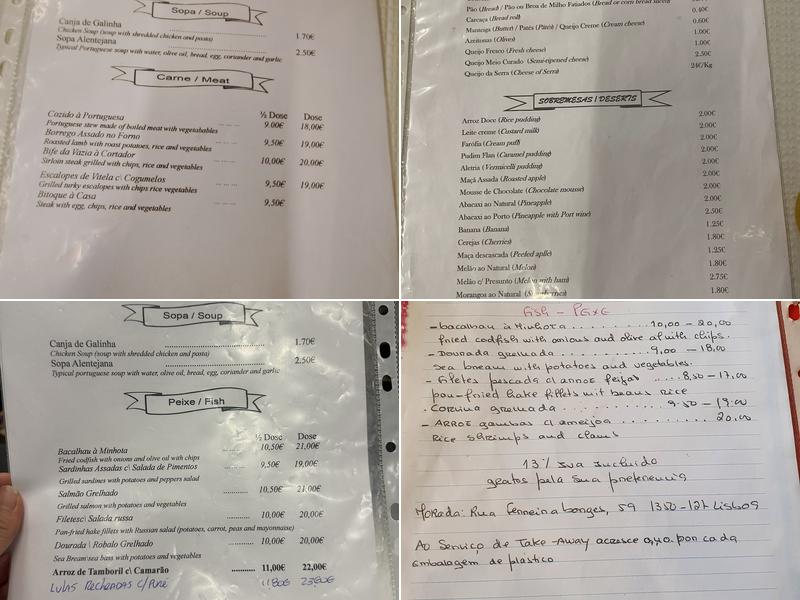 Sopa / Soup
Canja de Galinha
Chicken Soup (soup with shredded chicken and pasta) 1.70€
Sopa Alentejana
Typical Portuguese soup with water, olive oil, bread, egg, coriander and garlic 2.50€
Carne / Meat
½ Dose Dose
Cozido à Portuguesa 9.00€ 18,00€
Portuguese stew made of boiled meat with vegetables
Borrego Assado no Forno 9,50€ 19,00€
Roasted lamb with roast potatoes, rice and vegetables
Bife da Vazia à Cortador 10,00€ 20,00€
Sirloin steak grilled with chips, rice and vegetables
Escalopes de Vitela c\ Cogumelos 9,50€ 19,00€
Grilled turky escalopes with chips rice vegetables
Bitoque à Casa 9,50€
Steak with egg, chips, rice and vegetables
Pão (Bread) / Pão ou Broa de Milho Fatiados (Bread or corn bread slices)
Carcaça (Bread roll) 0.40€
Manteiga (Butter) / Patés (Pâté) / Queijo Creme (Cream cheese) 0.60€
Azeitonas (Olives) 1.00€
Queijo Fresco (Fresh cheese) 1.00€
Queijo Meio Curado (Semi-ripened cheese) 2.50€
Queijo da Serra (Cheese of Serra) 24€/Kg
SOBREMESAS / DESERTS
Arroz Doce (Rice pudding) 2.00€
Leite creme (Custard milk) 2.00€
Farófia (Cream puff) 2.00€
Pudim Flan (Caramel pudding) 2.00€
Aletria (Vermicelli pudding) 2.00€
Maçã Assada (Roasted apple) 2.00€
Mousse de Chocolate (Chocolate mousse) 2.00€
Abacaxi ao Natural (Pineapple) 2.00€
Abacaxi ao Porto (Pineapple with Port wine) 2.50€
Banana (Banana) 1.25€
Cerejas (Cherries) 1.80€
Maça descascada (Peeled aplle) 1.25€
Melão ao Natural (Melon) 1.80€
Melão c/ Presunto (Melon with ham) 2.75€
Morangos ao Natural 1.80€
Sopa / Soup
Canja de Galinha 1.70€
Chicken Soup (soup with shredded chicken and pasta)
Sopa Alentejana 2.50€
Typical portuguese soup with water, olive oil, bread, egg, coriander and garlic
Peixe / Fish
½ Dose Dose
Bacalhau à Minhota 10,50€ 21,00€
Fried codfish with onions and olive oil with chips
Sardinhas Assadas c\ Salada de Pimentos 9,50€ 19,00€
Grilled sardines with potatoes and peppers salad
Salmão Grelhado 10,50€ 21,00€
Grilled salmon with potatoes and vegetables
Filetesc\ Salada russa 10,00€ 20,00€
Pan-fried hake fillets with Russian salad (potatoes, carrot, peas and mayonnaise)
Dourada \ Robalo Grelhado 10,00€ 20,00€
Sea Bream\sea bass with potatoes and vegetables
Arroz de Tamboril c\ Camarão 11,00€ 22,00€
Lulas Recheadas c/Puré 11.80€ 23.60€
Fish - Peixe
- bacalhau à Minhota 10,00 - 20,00
fried codfish with onions and olive oil with chips.
- Dourada grelhada 9,00 - 18,00
Sea bream with potatoes and vegetables.
- Filetes pescada c/ arroz feijão 8,50 - 17,00
pan-fried hake fillets wit beans rice
- Corvina grelhada 9.50 - 19.00
- Arroz gambas c/ ameijoa 20.00
Rice shrimps and clams
13% iva incluido
gratos pela sua preferencia
Morada: Rua Ferreira borges, 59 1350-127 Lisboa
Ao Serviço de Take-Away acresce 0,40. por cada
embalagem de plástico